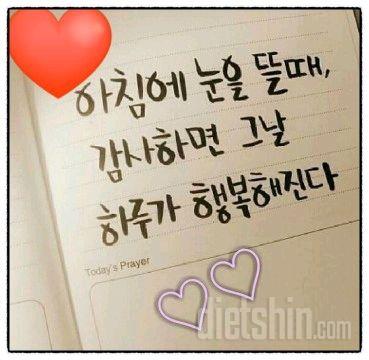 아침에 눈을 뜰때,
감사하면 그날
하루가 행복해진다
Today's Prayer
dietshin.com